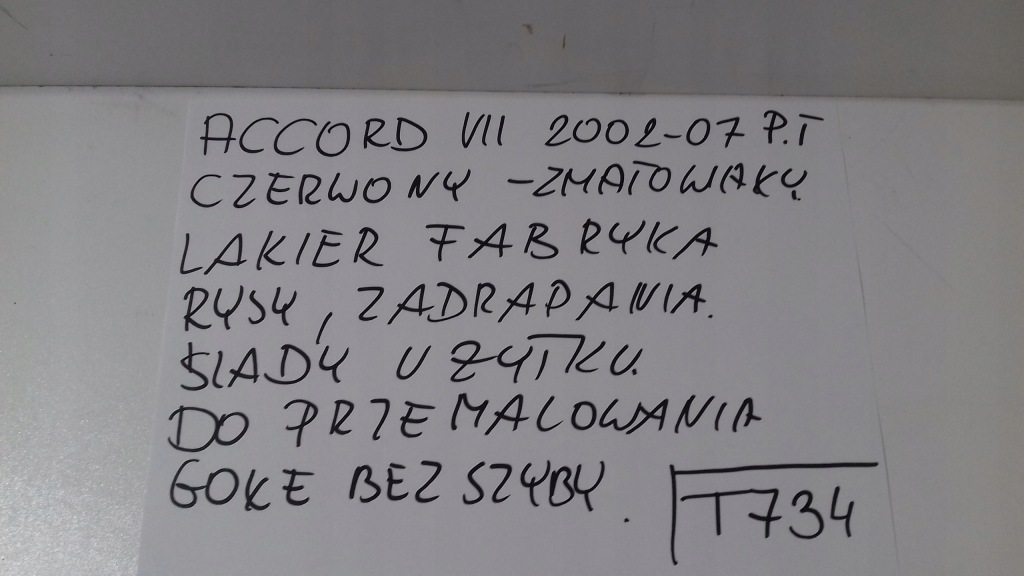 ACCORD VII 2002-07 P.T
CZERWONY - ZMATOWIAŁY
LAKIER FABRYKA
RYSY, ZADRAPANIA.
ŚLADY UŻYTKU.
DO PRZEMALOWANIA
GOŁE BEZ SZYBY.
T734